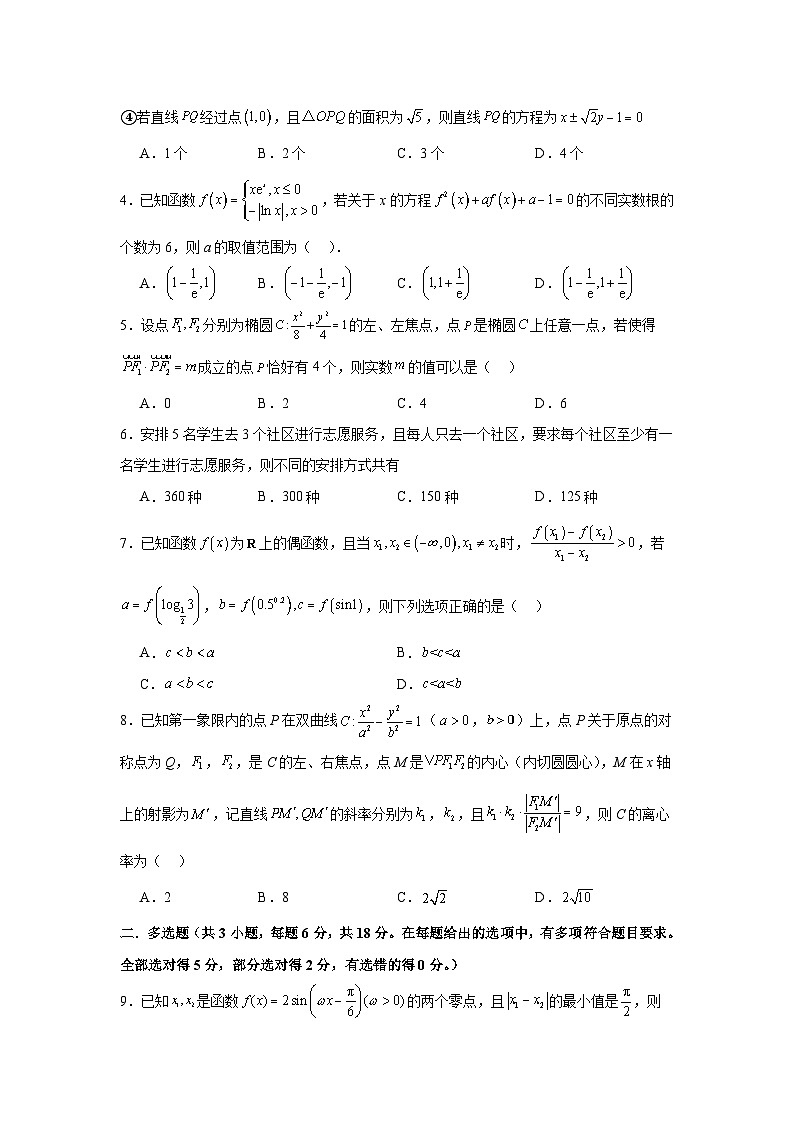 ④若直线PQ经过点(1,0)，且△OPQ的面积为√5，则直线PQ的方程为x±√2y−1=0
A．1个 B．2个 C．3个 D．4个
4．已知函数f(x)={xeˣ,x≤0 −|ln x|,x>0，若关于x的方程f²(x)+af(x)+a−1=0的不同实数根的
个数为6，则a的取值范围为（ ）．
A．(1−1/e,1) B．(−1−1/e,−1) C．(1,1+1/e) D．(1−1/e,1+1/e)
5．设点F₁,F₂分别为椭圆C:x²/8+y²/4=1的左、左焦点，点P是椭圆C上任意一点，若使得
PF₁·PF₂=m成立的点P恰好有4个，则实数m的值可以是（ ）
A．0 B．2 C．4 D．6
6．安排5名学生去3个社区进行志愿服务，且每人只去一个社区，要求每个社区至少有一
名学生进行志愿服务，则不同的安排方式共有
A．360种 B．300种 C．150种 D．125种
7．已知函数f(x)为R上的偶函数，且当x₁,x₂∈(−∞,0),x₁≠x₂时，(f(x₁)−f(x₂))/(x₁−x₂)>0，若
a=f(log_{1/2}3)，b=f(0.5^{0.2}),c=f(sin1)，则下列选项正确的是（ ）
A．c<b<a B．b<c<a
C．a<b<c D．c<a<b
8．已知第一象限内的点P在双曲线C:x²/a²−y²/b²=1（a>0，b>0）上，点P关于原点的对
称点为Q，F₁，F₂，是C的左、右焦点，点M是∨PF₁F₂的内心（内切圆圆心），M在x轴
上的射影为M′，记直线PM′,QM′的斜率分别为k₁，k₂，且k₁·k₂·|F₁M′|/|F₂M′|=9，则C的离心
率为（ ）
A．2 B．8 C．2√2 D．2√10
二．多选题（共3小题，每题6分，共18分。在每题给出的选项中，有多项符合题目要求。
全部选对得5分，部分选对得2分，有选错的得0分。）
9．已知x₁,x₂是函数f(x)=2sin(ωx−π/6)(ω>0)的两个零点，且|x₁−x₂|的最小值是π/2，则